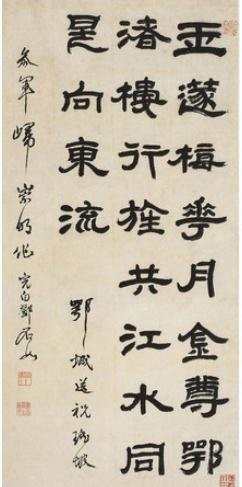 玉篴梅華月金尊鄂
渚樓行旌共江水同
是向東流
鄂城送祝坡
參軍歸崇明作 完白鄧石如